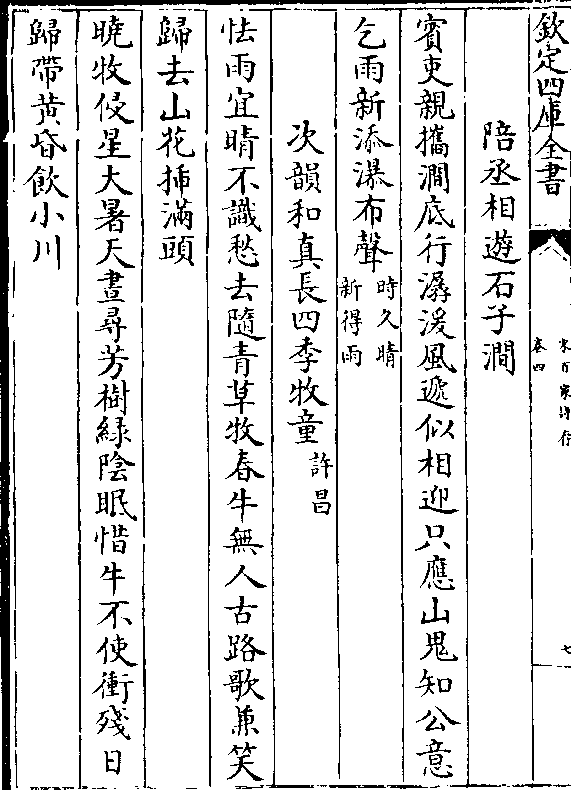 欽定四庫全書
宋百家詩存
卷四
七
陪丞相遊石子澗
賓吏親攜澗底行潺湲風遞似相迎只應山鬼知公意
乞雨新添瀑布聲
時久晴
新得雨
次韻和真長四季牧童
許昌
怯雨宜晴不識愁去隨青草牧春牛無人古路歌兼笑
歸去山花揷滿頭
曉牧侵星大暑天晝尋芳樹綠陰眠惜牛不使衝殘日
歸帶黄昏飲小川